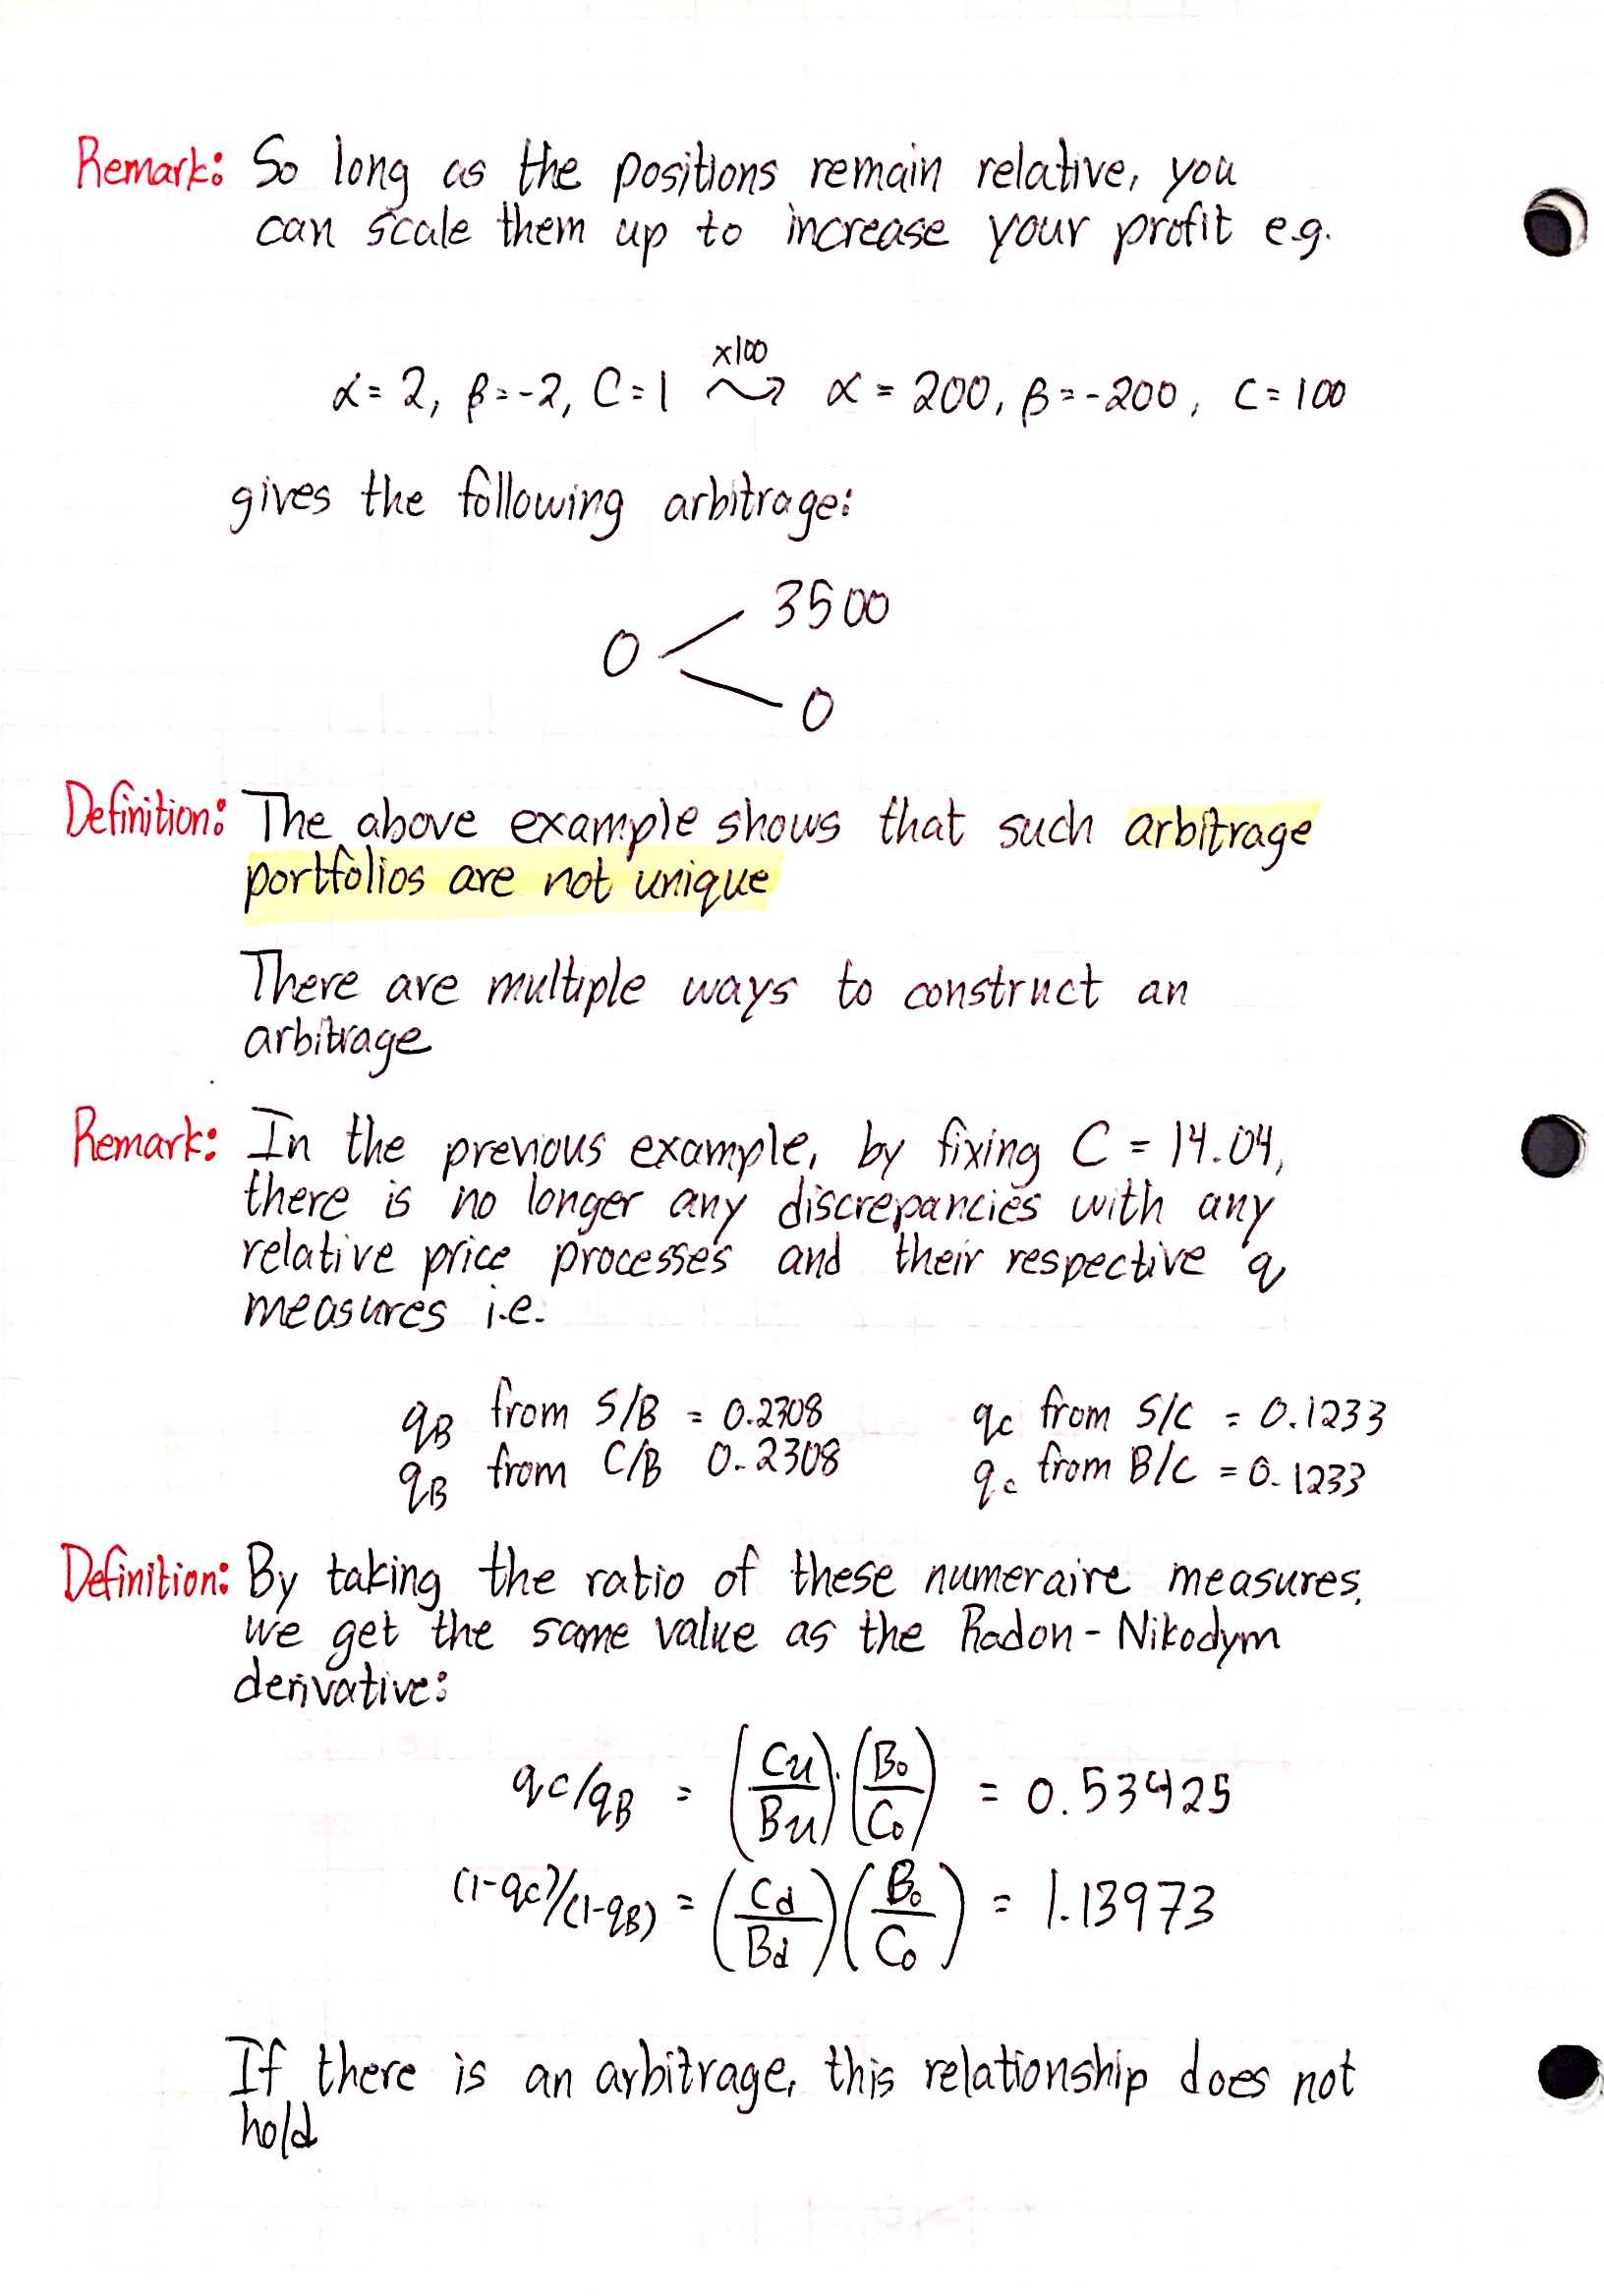 Remark: So long as the positions remain relative, you
can scale them up to increase your profit e.g.
x100
α = 2, β = -2, C = 1 ⤳ α = 200, β = -200, C = 100
gives the following arbitrage:
3500
0
0
Definition: The above example shows that such arbitrage
portfolios are not unique
There are multiple ways to construct an
arbitrage
Remark: In the previous example, by fixing C = 14.04,
there is no longer any discrepancies with any
relative price processes and their respective q
measures i.e.
qB from S/B = 0.2308 qc from S/C = 0.1233
qB from C/B 0.2308 qc from B/C = 0.1233
Definition: By taking the ratio of these numeraire measures,
we get the same value as the Radon-Nikodym
derivative:
qC/qB = (Cu/Bu)·(B0/C0) = 0.53425
(1-qC)/(1-qB) = (Cd/Bd)(B0/C0) = 1.13973
If there is an arbitrage, this relationship does not
hold